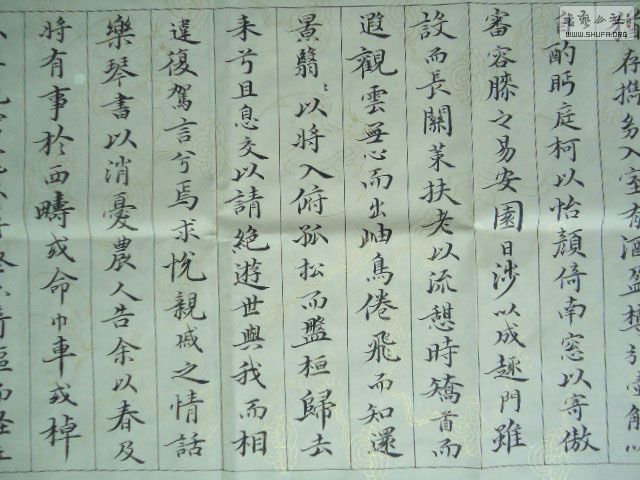 存攜幼入室有酒盈樽引壺觴以
酌眄庭柯以怡顏倚南窓以寄傲
審容膝之易安園日涉以成趣門雖
設而長關策扶老以流憩時矯首而
遐觀雲無心而出岫鳥倦飛而知還
景翳〻以將入俯孤松而盤桓歸去
来兮且息交以請絕遊世與我而相
違復駕言兮焉求悅親戚之情話
樂琴書以消憂農人告余以春及
將有事於西疇或命巾車或棹
崎嶇而經
書法公社
WWW.SHUFA.ORG